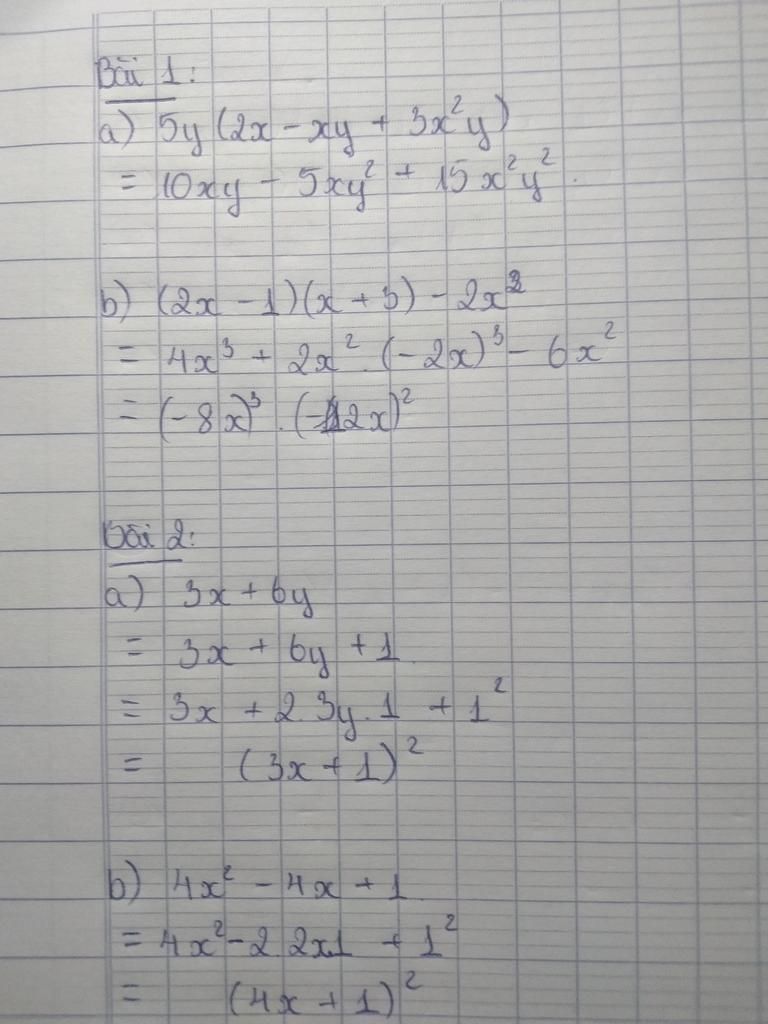 Bài 1:
a) 5y (2x - xy + 3x²y)
= 10xy - 5xy² + 15x²y².
b) (2x - 1)(x + 3) - 2x²
= 4x³ + 2x² . (-2x)³ - 6x²
= (-8x)³ . (-12x)²
Bài 2:
a) 3x + 6y
= 3x + 6y + 1
= 3x + 2.3y.1 + 1²
= (3x + 1)²
b) 4x² - 4x + 1
= 4x² - 2.2x1 + 1²
= (4x + 1)²